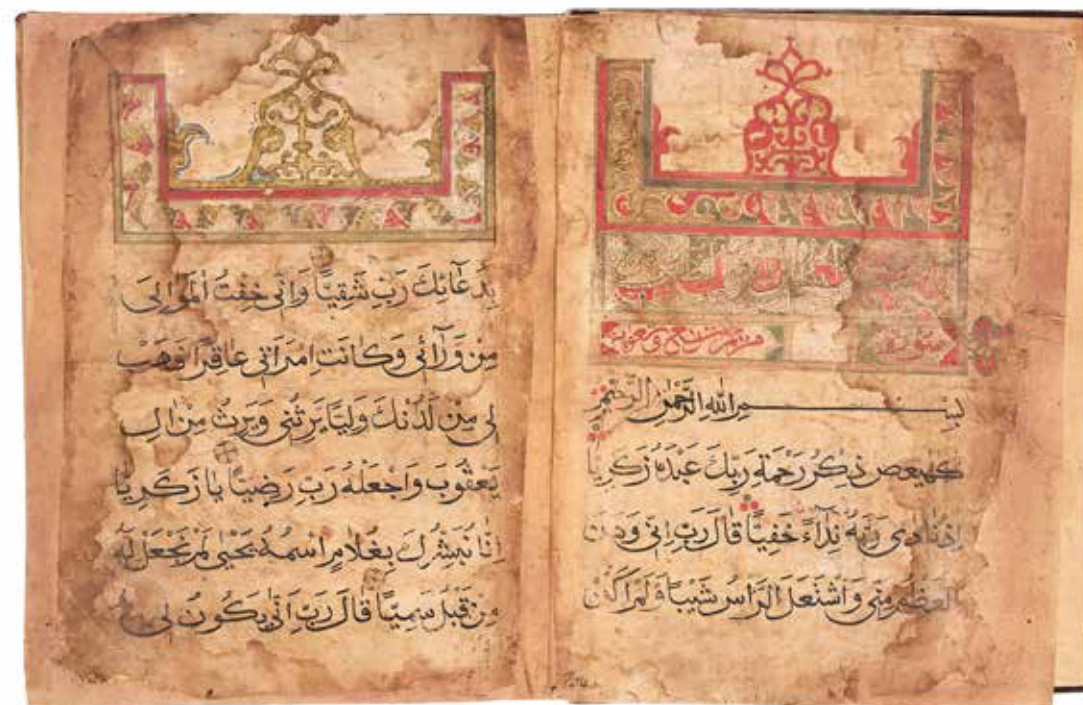 سورة مريم تسع
بِسْمِ اللهِ الرَّحْمٰنِ الرَّحْيمِ
كٓهٰيٰعٓصٓ ذِكْرُ رَحْمَةِ رَبِّكَ عَبْدَهُ زَكَرِيَّا
اِذْ نَادٰى رَبَّهُ نِدَآءً خَفِيًّا قَالَ رَبِّ اِنّٖى وَهَنَ
الْعَظْمُ مِنّٖى وَاشْتَعَلَ الرَّاسُ شَيْبًا وَلَمْ اَكُنْ
بِدُعَآئِكَ رَبِّ شَقِيًّا وَاِنّٖى خِفْتُ الْمَوَالِىَ
مِنْ وَرَآئٖى وَكَانَتِ امْرَاَتٖى عَاقِرًا فَهَبْ
لٖى مِنْ لَدُنْكَ وَلِيًّا يَرِثُنٖى وَيَرِثُ مِنْ اٰلِ
يَعْقُوبَ وَاجْعَلْهُ رَبِّ رَضِيًّا يَا زَكَرِيَّا
اِنَّا نُبَشِّرُكَ بِغُلَامٍ اسْمُهُ يَحْيٰى لَمْ نَجْعَلْ لَهُ
مِنْ قَبْلُ سَمِيًّا قَالَ رَبِّ اَنّٰى يَكُونُ لٖى